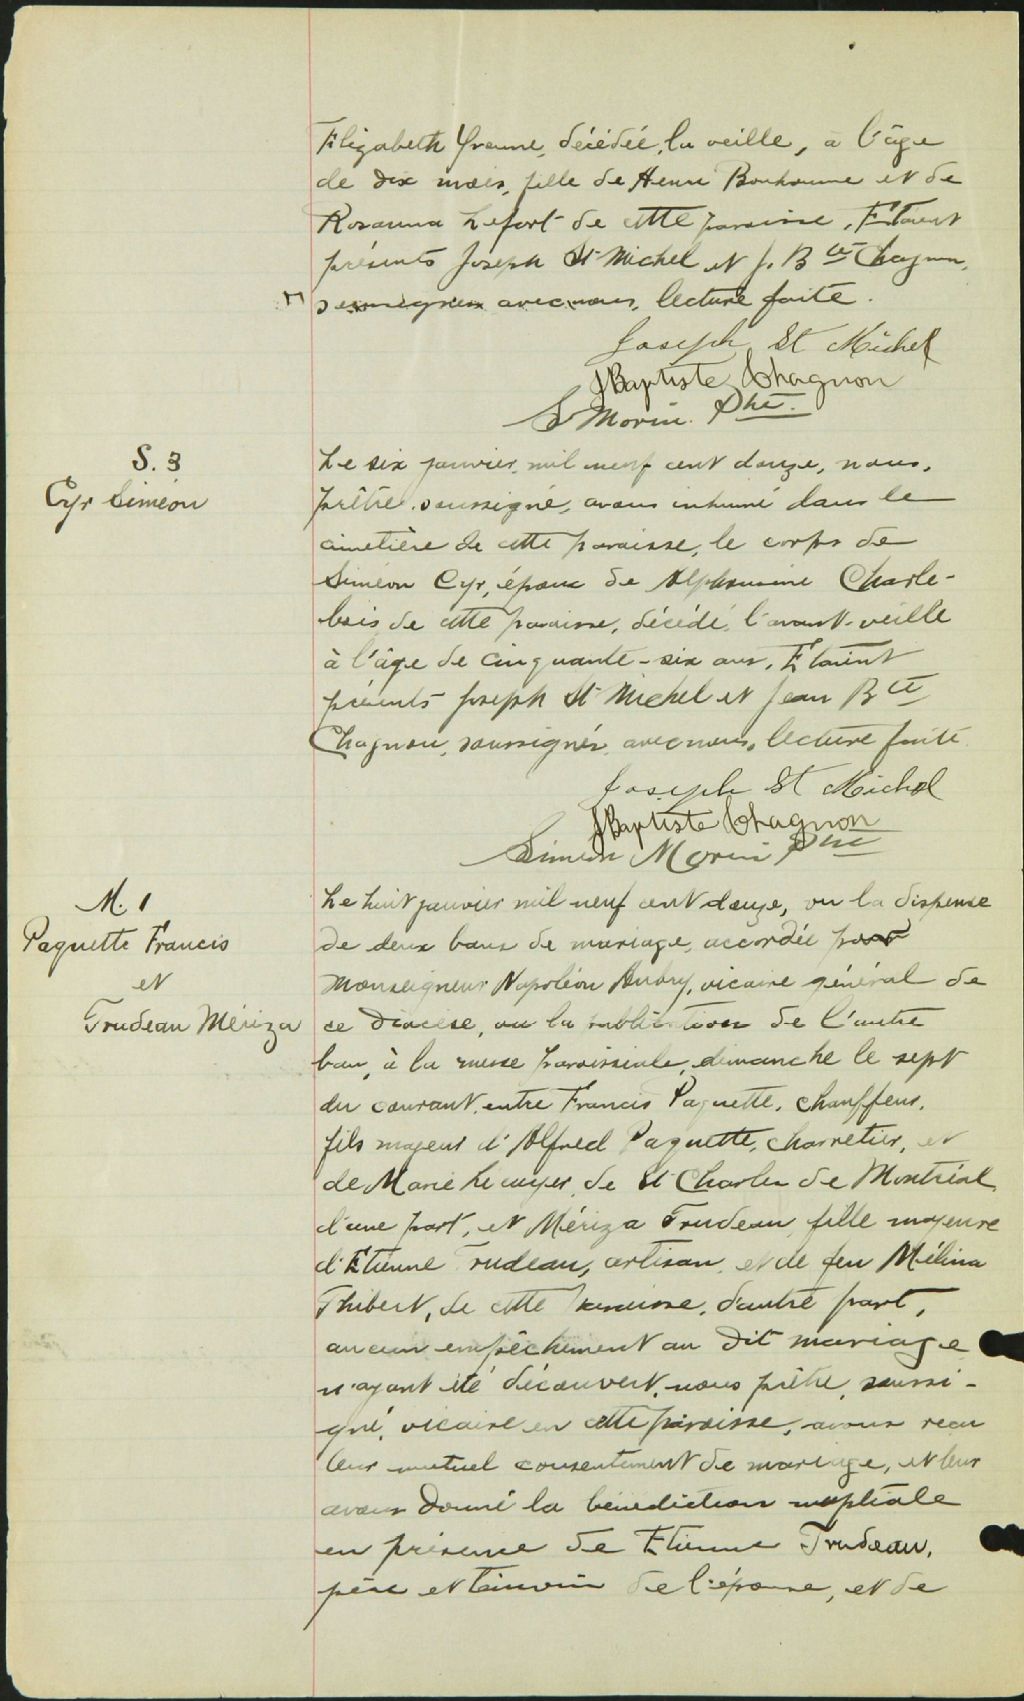 Elizabeth Yvonne, décédée, la veille, à l'âge
de dix mois, fille de Henri Bonhomme et de
Rosanna Lefort de cette paroisse. Etaient
présents Joseph St Michel et J. Bte Chagnon,
soussignés avec nous, lecture faite.
Joseph St Michel
JBaptiste Chagnon
S Morin Ptre.
S. 3
Cyr Siméon
Le six janvier, mil neuf cent douze, nous,
prêtre soussigné, avons inhumé dans le
cimetière de cette paroisse, le corps de
Siméon Cyr, époux de Alphonsine Charle-
bois de cette paroisse, décédé, l'avant-veille
à l'âge de cinquante-six ans. Etaient
présents Joseph St Michel et Jean Bte
Chagnon, soussignés avec nous, lecture faite
Joseph St Michel
JBaptiste Chagnon
Simeon Morin Ptre
M. 1
Paquette Francis
et
Trudeau Mériza
Le huit janvier mil neuf cent douze, vu la dispense
de deux bans de mariage, accordée par
Monseigneur Napoléon Aubry, vicaire général de
ce diocèse, vu la publication de l'autre
ban, à la messe paroissiale, dimanche le sept
du courant, entre Francis Paquette, chauffeur,
fils majeur d'Alfred Paquette, charretier, et
de Marie Lecuyer, de St Charles de Montréal,
d'une part, et Mériza Trudeau, fille majeure
d'Etienne Trudeau, artisan, et de feu Mélina
Thibert, de cette paroisse, d'autre part,
aucun empêchement au dit mariage
n'ayant été découvert, nous prêtre, soussi-
gné, vicaire en cette paroisse, avons reçu
leur mutuel consentement de mariage, et leur
avons donné la bénédiction nuptiale
en présence de Etienne Trudeau,
père et témoin de l'épouse, et de